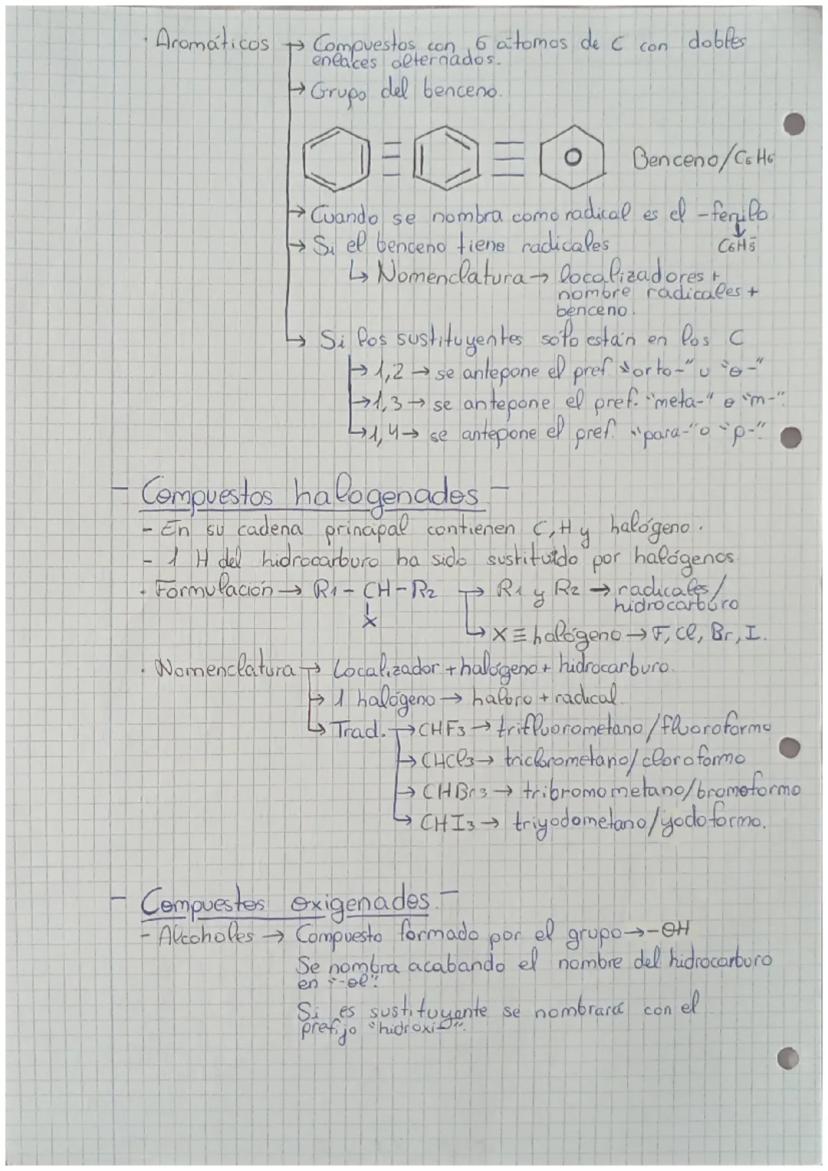 · Aromáticos → Compuestos con 6 átomos de C con dobles
enlaces alternados.
→ Grupo del benceno.
≡ ≡ Benceno/C6H6
→ Cuando se nombra como radical es el -fenilo
→ Si el benceno tiene radicales C6H5-
↳ Nomenclatura → localizadores +
nombre radicales +
benceno.
↳ Si los sustituyentes solo están en los C
→ 1,2 → se antepone el pref "orto-" u "o-"
→ 1,3 → se antepone el pref. "meta-" o "m-".
↳ 1,4 → se antepone el pref. "para-" o "p-".
- Compuestos halogenados -
- En su cadena principal contienen C, H y halógeno.
- 1 H del hidrocarburo ha sido sustituido por halógenos
· Formulación → R1 - CH - R2 → R1 y R2 → radicales/
hidrocarburo
X ↳ X ≡ halógeno → F, Cl, Br, I.
· Nomenclatura → Localizador + halógeno + hidrocarburo.
→ 1 halógeno → haloro + radical
↳ Trad. → CHF3 → trifluorometano/fluoroformo
→ CHCl3 → triclorometano/cloroformo
→ CHBr3 → tribromometano/bromoformo
↳ CHI3 → triyodometano/yodoformo.
- Compuestos oxigenados. -
- Alcoholes → Compuesto formado por el grupo → -OH
Se nombra acabando el nombre del hidrocarburo
en "-ol".
Si es sustituyente se nombrará con el
prefijo "hidroxi-".